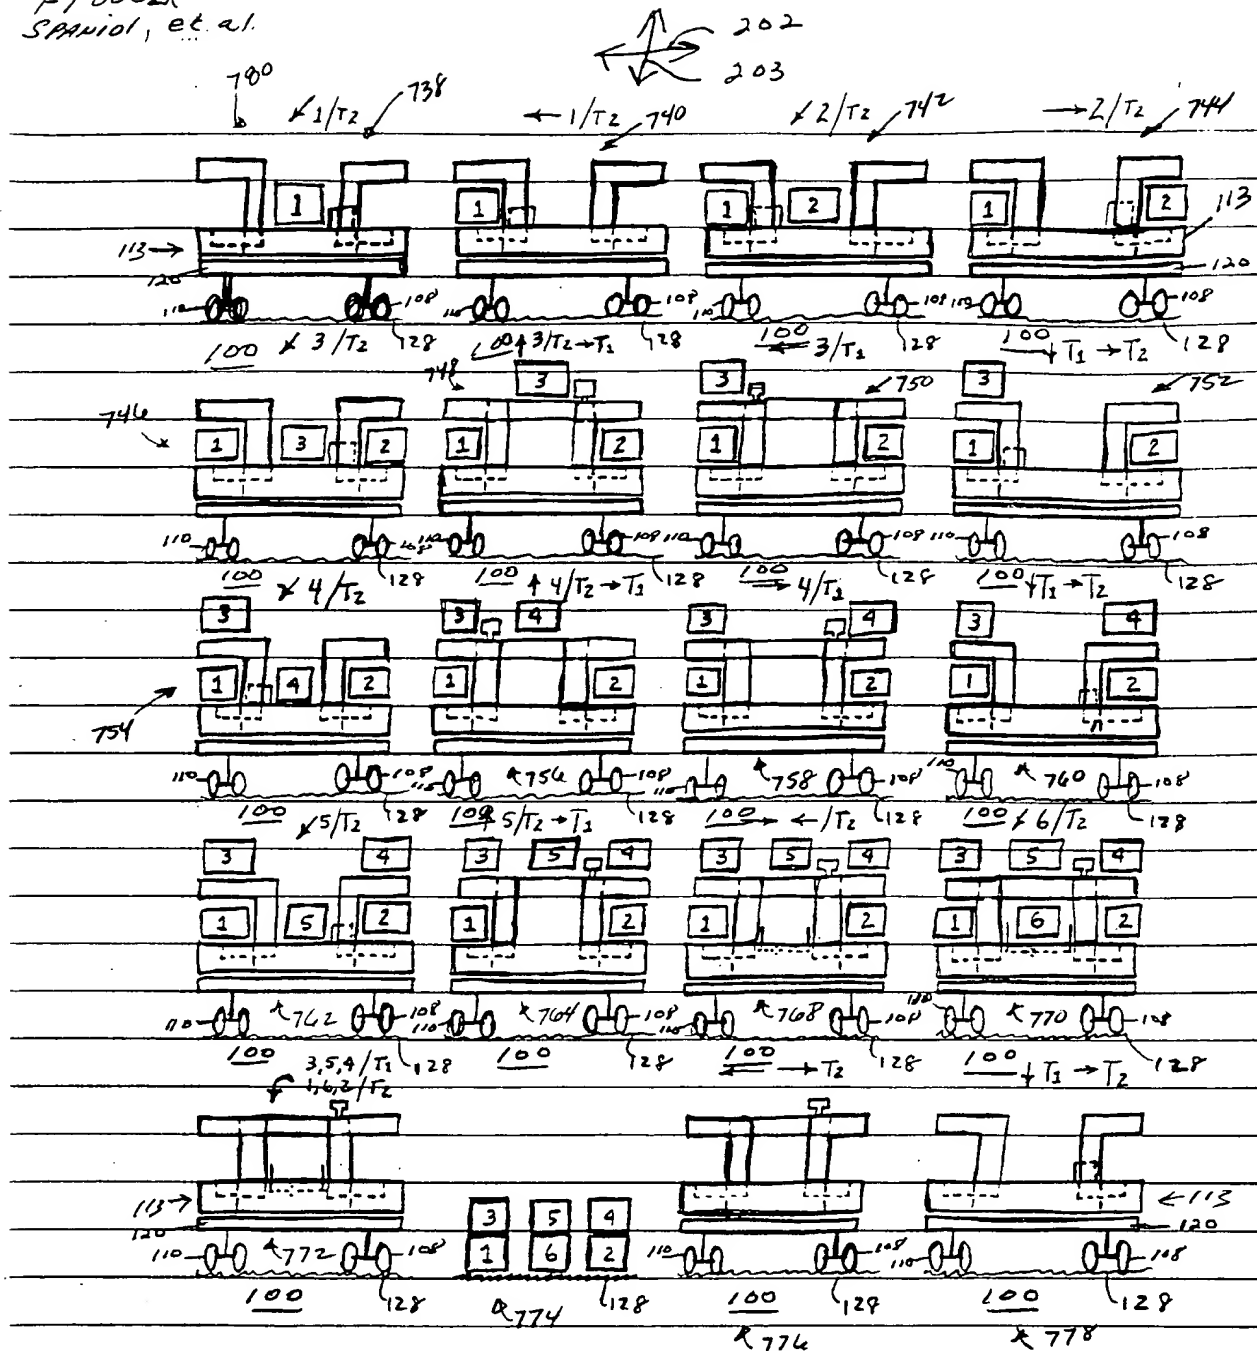 SPANIOL, et. al.
202
203
780
↙ 1/T2
738
← 1/T2
740
↙ 2/T2
742
→ 2/T2
744
1
1
1
2
1
2
113
113
120
120
110
108
110
108
110
108
110
108
100
↙ 3/T2
128
100
↑ 3/T2 → T1
128
100
← 3/T1
128
100
↓ T1 → T2
128
746
748
3
3
750
3
752
1
3
2
1
2
1
2
1
2
110
108
110
108
110
108
110
108
100
↙ 4/T2
128
100
↑ 4/T2 → T1
128
100
→ 4/T1
128
100
↓ T1 → T2
128
3
3
4
3
4
3
4
754
1
4
2
1
2
1
2
1
2
110
108
110
756
108
110
758
108
110
760
108
100
↙ 5/T2
128
100
↑ 5/T2 → T1
128
100
→ ← /T2
128
100
↙ 6/T2
128
3
4
3
5
4
3
5
4
3
5
4
1
5
2
1
2
1
2
1
6
2
110
762
108
110
764
108
110
768
108
110
770
108
100
3,5,4/T1
1,6,2/T2
128
100
128
100
← → T2
128
100
↓ T1 → T2
128
113
113
120
120
3 5 4
1 6 2
110
772
108
110
108
110
108
100
128
774
128
100
128
100
128
776
778